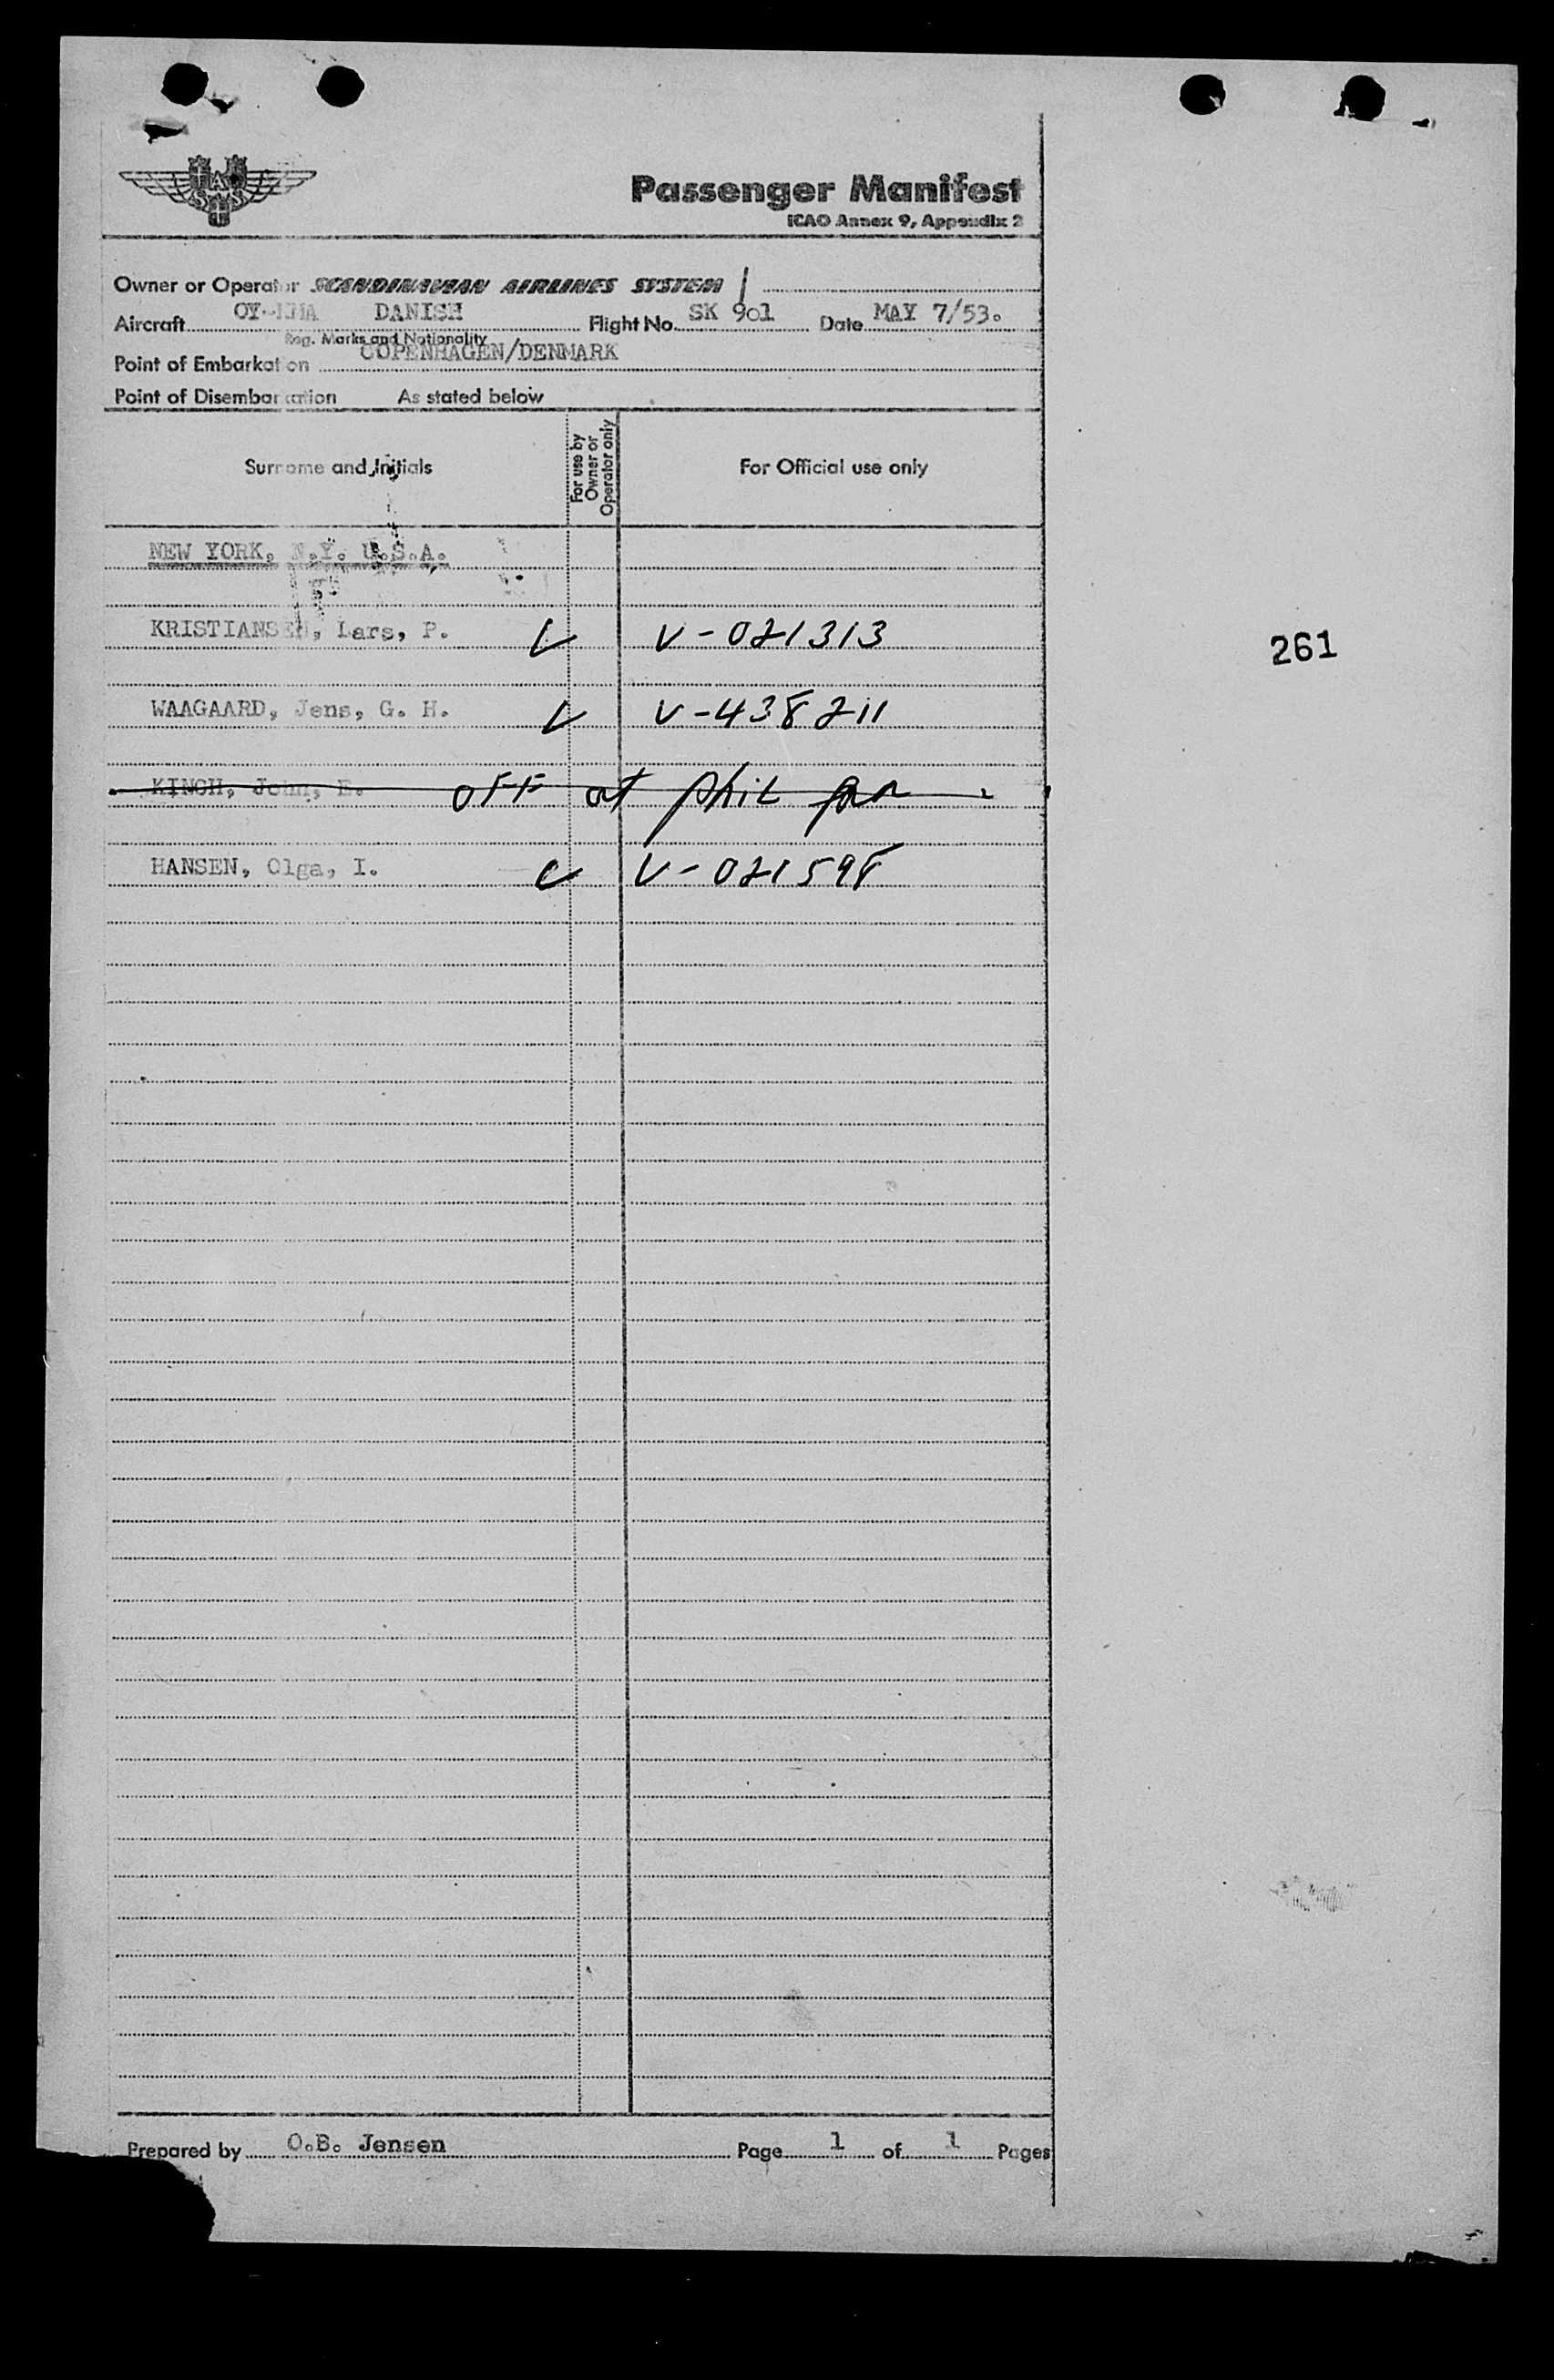 Passenger Manifest
ICAO Annex 9, Appendix 2
Owner or Operator SCANDINAVIAN AIRLINES SYSTEM
Aircraft DANISH Flight No. SK 901 Date MAY 7/53.
Reg. Marks and Nationality
Point of Embarkation COPENHAGEN/DENMARK
Point of Disembarkation As stated below
Surname and Initials For use by Owner or Operator only For Official use only
NEW YORK, N.Y. U.S.A.
KRISTIANSEN, Lars, P. V-021313
261
WAAGAARD, Jens, G. H. V-438211
KINCH, John, E. OFF at phil
HANSEN, Olga, I. V-021598
Prepared by O.B. Jensen Page 1 of 1 Pages